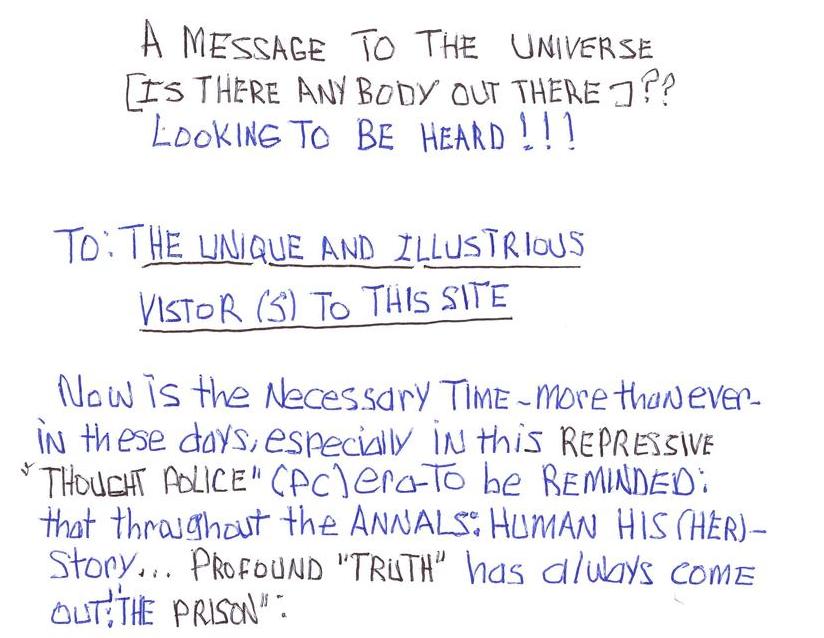 A MESSAGE TO THE UNIVERSE
[IS THERE ANY BODY OUT THERE]??
LOOKING TO BE HEARD!!!
TO: THE UNIQUE AND ILLUSTRIOUS
VISTOR (S) TO THIS SITE
Now is the Necessary TIME - more than ever-
in these days, especially in this REPRESSIVE
"THOUGHT POLICE" (PC) era-To be REMINDED:
that throughout the ANNALS: HUMAN HIS (HER)-
Story... PROFOUND "TRUTH" has always COME
OUT: "THE PRISON":